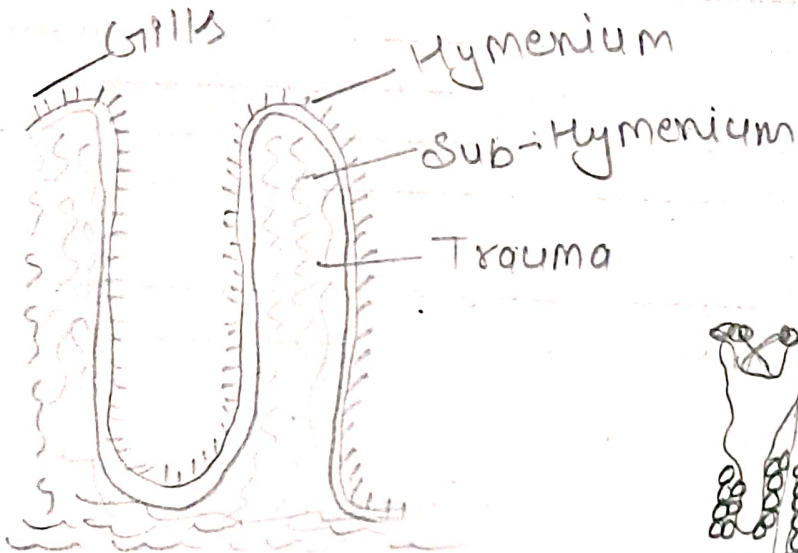 Gills
Hymenium
Sub-Hymenium
Trauma